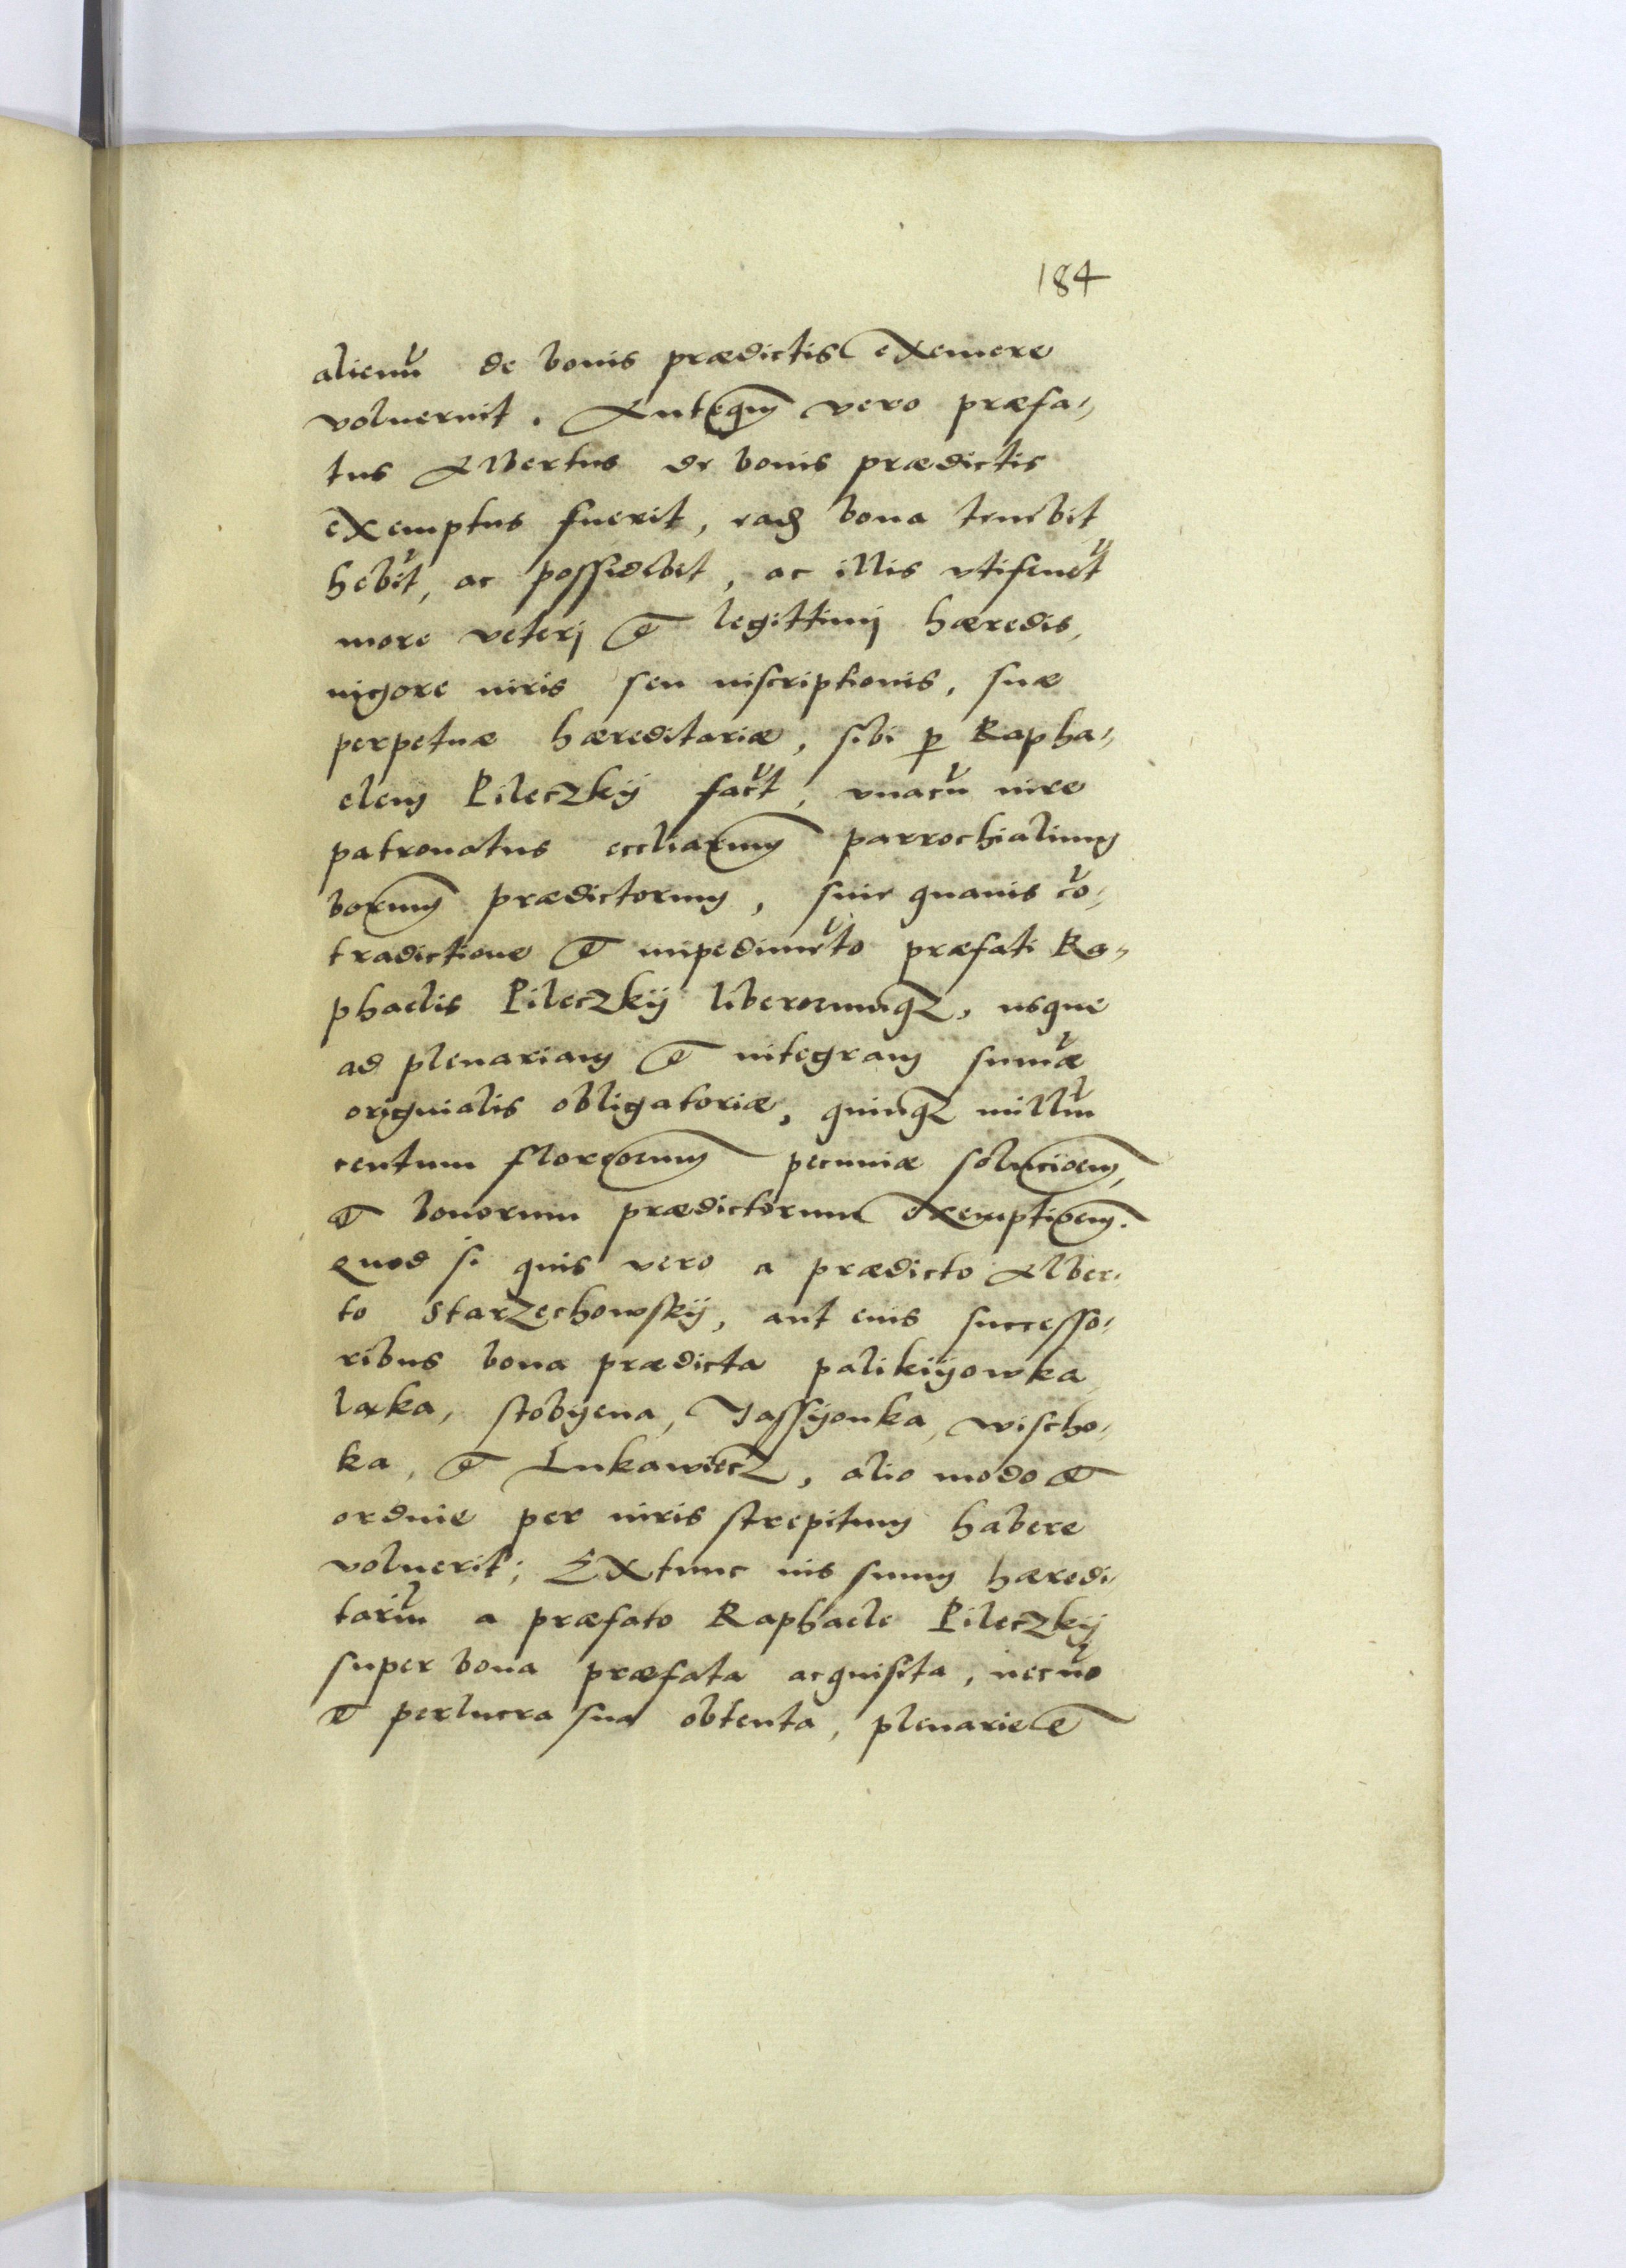 184
alienū de bonis prædictis exemere
voluerint. Anteqm vero præfa-
tus Albertus de bonis prædictis
exemptus fuerit, eadē bona tenebit
hēbit, ac possidebit, ac illis utifruet̄
more veterj et legittimj hæredis,
vigore iuris seu inscriptionis, suæ
perpetuæ hæreditariæ, sibi p̱ Rapha-
elem Pileczkij fact̄, vnacū iure
patronatus eccliarum parrochialium
borum prædictorum, sine quauis cō-
tradictione et impedimēto præfati Ra-
phaelis Pileczkij liberorumqz, usque
ad plenariam et integram sum̄æ
originalis obligatoriæ, quinqz milliū
centum florenorum pecuniæ solucioem,
et bonorum prædictorum exemptioem.
Quod si quis vero a prædicto Alber-
to Starzechowskij, aut eius successo-
ribus bona prædicta palikijowka
laka, stobyena, Jassyonka, wischo-
ka, et Lukawiecz, alio modo et
ordine per iuris strepitum habere
voluerit; Extunc ius suum hæredi-
tariū a præfato Raphaele Pileczkij
super bona præfata acquisita, necnō
et perlucra sua obtenta, plenarie et